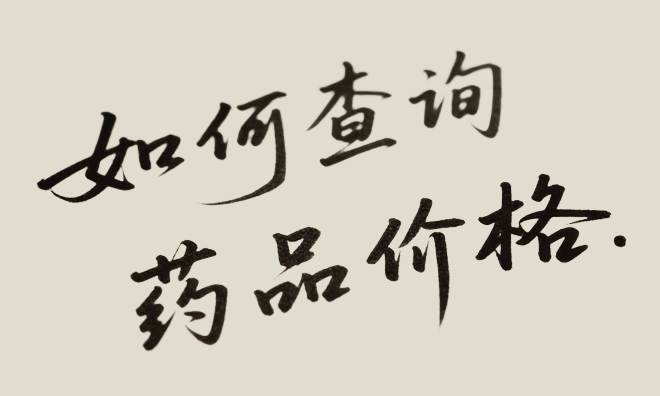 如何查询
药品价格.